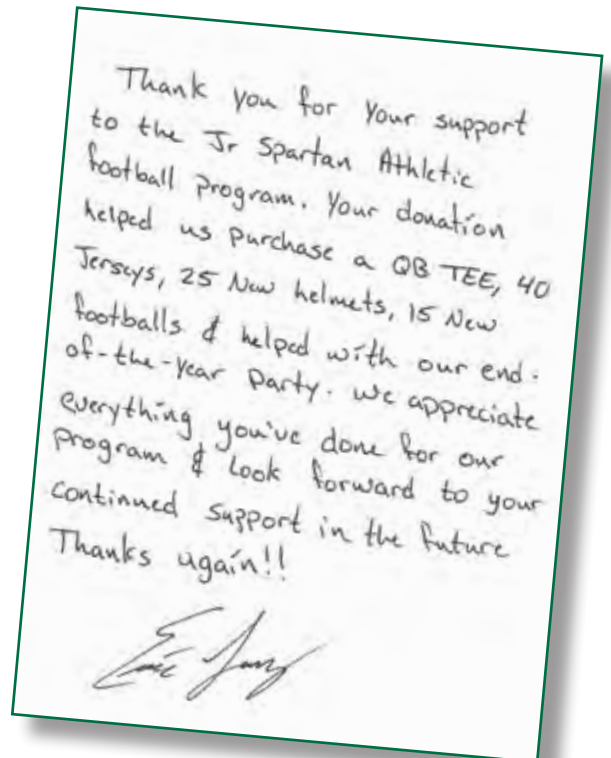 Thank you for your support
to the Jr Spartan Athletic
football program. Your donation
helped us purchase a QB TEE, 40
Jerseys, 25 New helmets, 15 New
footballs & helped with our end-
of-the-year party. We appreciate
everything you've done for our
program & Look forward to your
continued support in the future
Thanks again!!
Eric